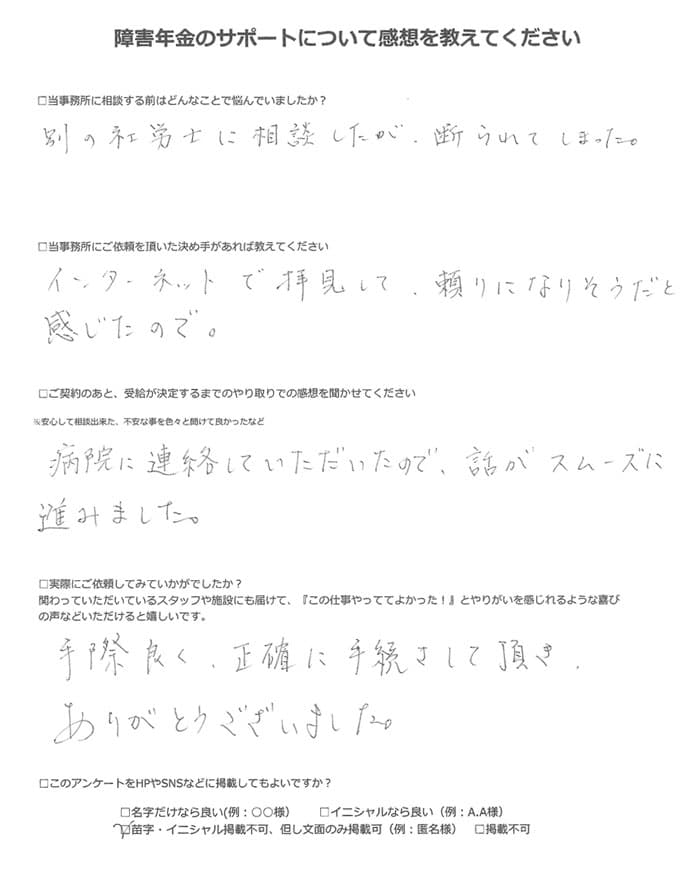 障害年金のサポートについて感想を教えてください
□当事務所に相談する前はどんなことで悩んでいましたか？
別の社労士に相談したが、断られてしまった。
□当事務所にご依頼を頂いた決め手があれば教えてください
インターネットで拝見して、頼りになりそうだと
感じたので。
□ご契約のあと、受給が決定するまでのやり取りでの感想を聞かせてください
※安心して相談出来た、不安な事を色々と聞けて良かったなど
病院に連絡していただいたので、話がスムーズに
進みました。
□実際にご依頼してみていかがでしたか？
関わっていただいているスタッフや施設にも届けて、『この仕事やっててよかった！』とやりがいを感じれるような喜び
の声などいただけると嬉しいです。
手際良く、正確に手続きして頂き、
ありがとうございました。
□このアンケートをHPやSNSなどに掲載してもよいですか？
□名字だけなら良い(例：〇〇様)　□イニシャルなら良い（例：A.A様）
□苗字・イニシャル掲載不可、但し文面のみ掲載可（例：匿名様）　□掲載不可